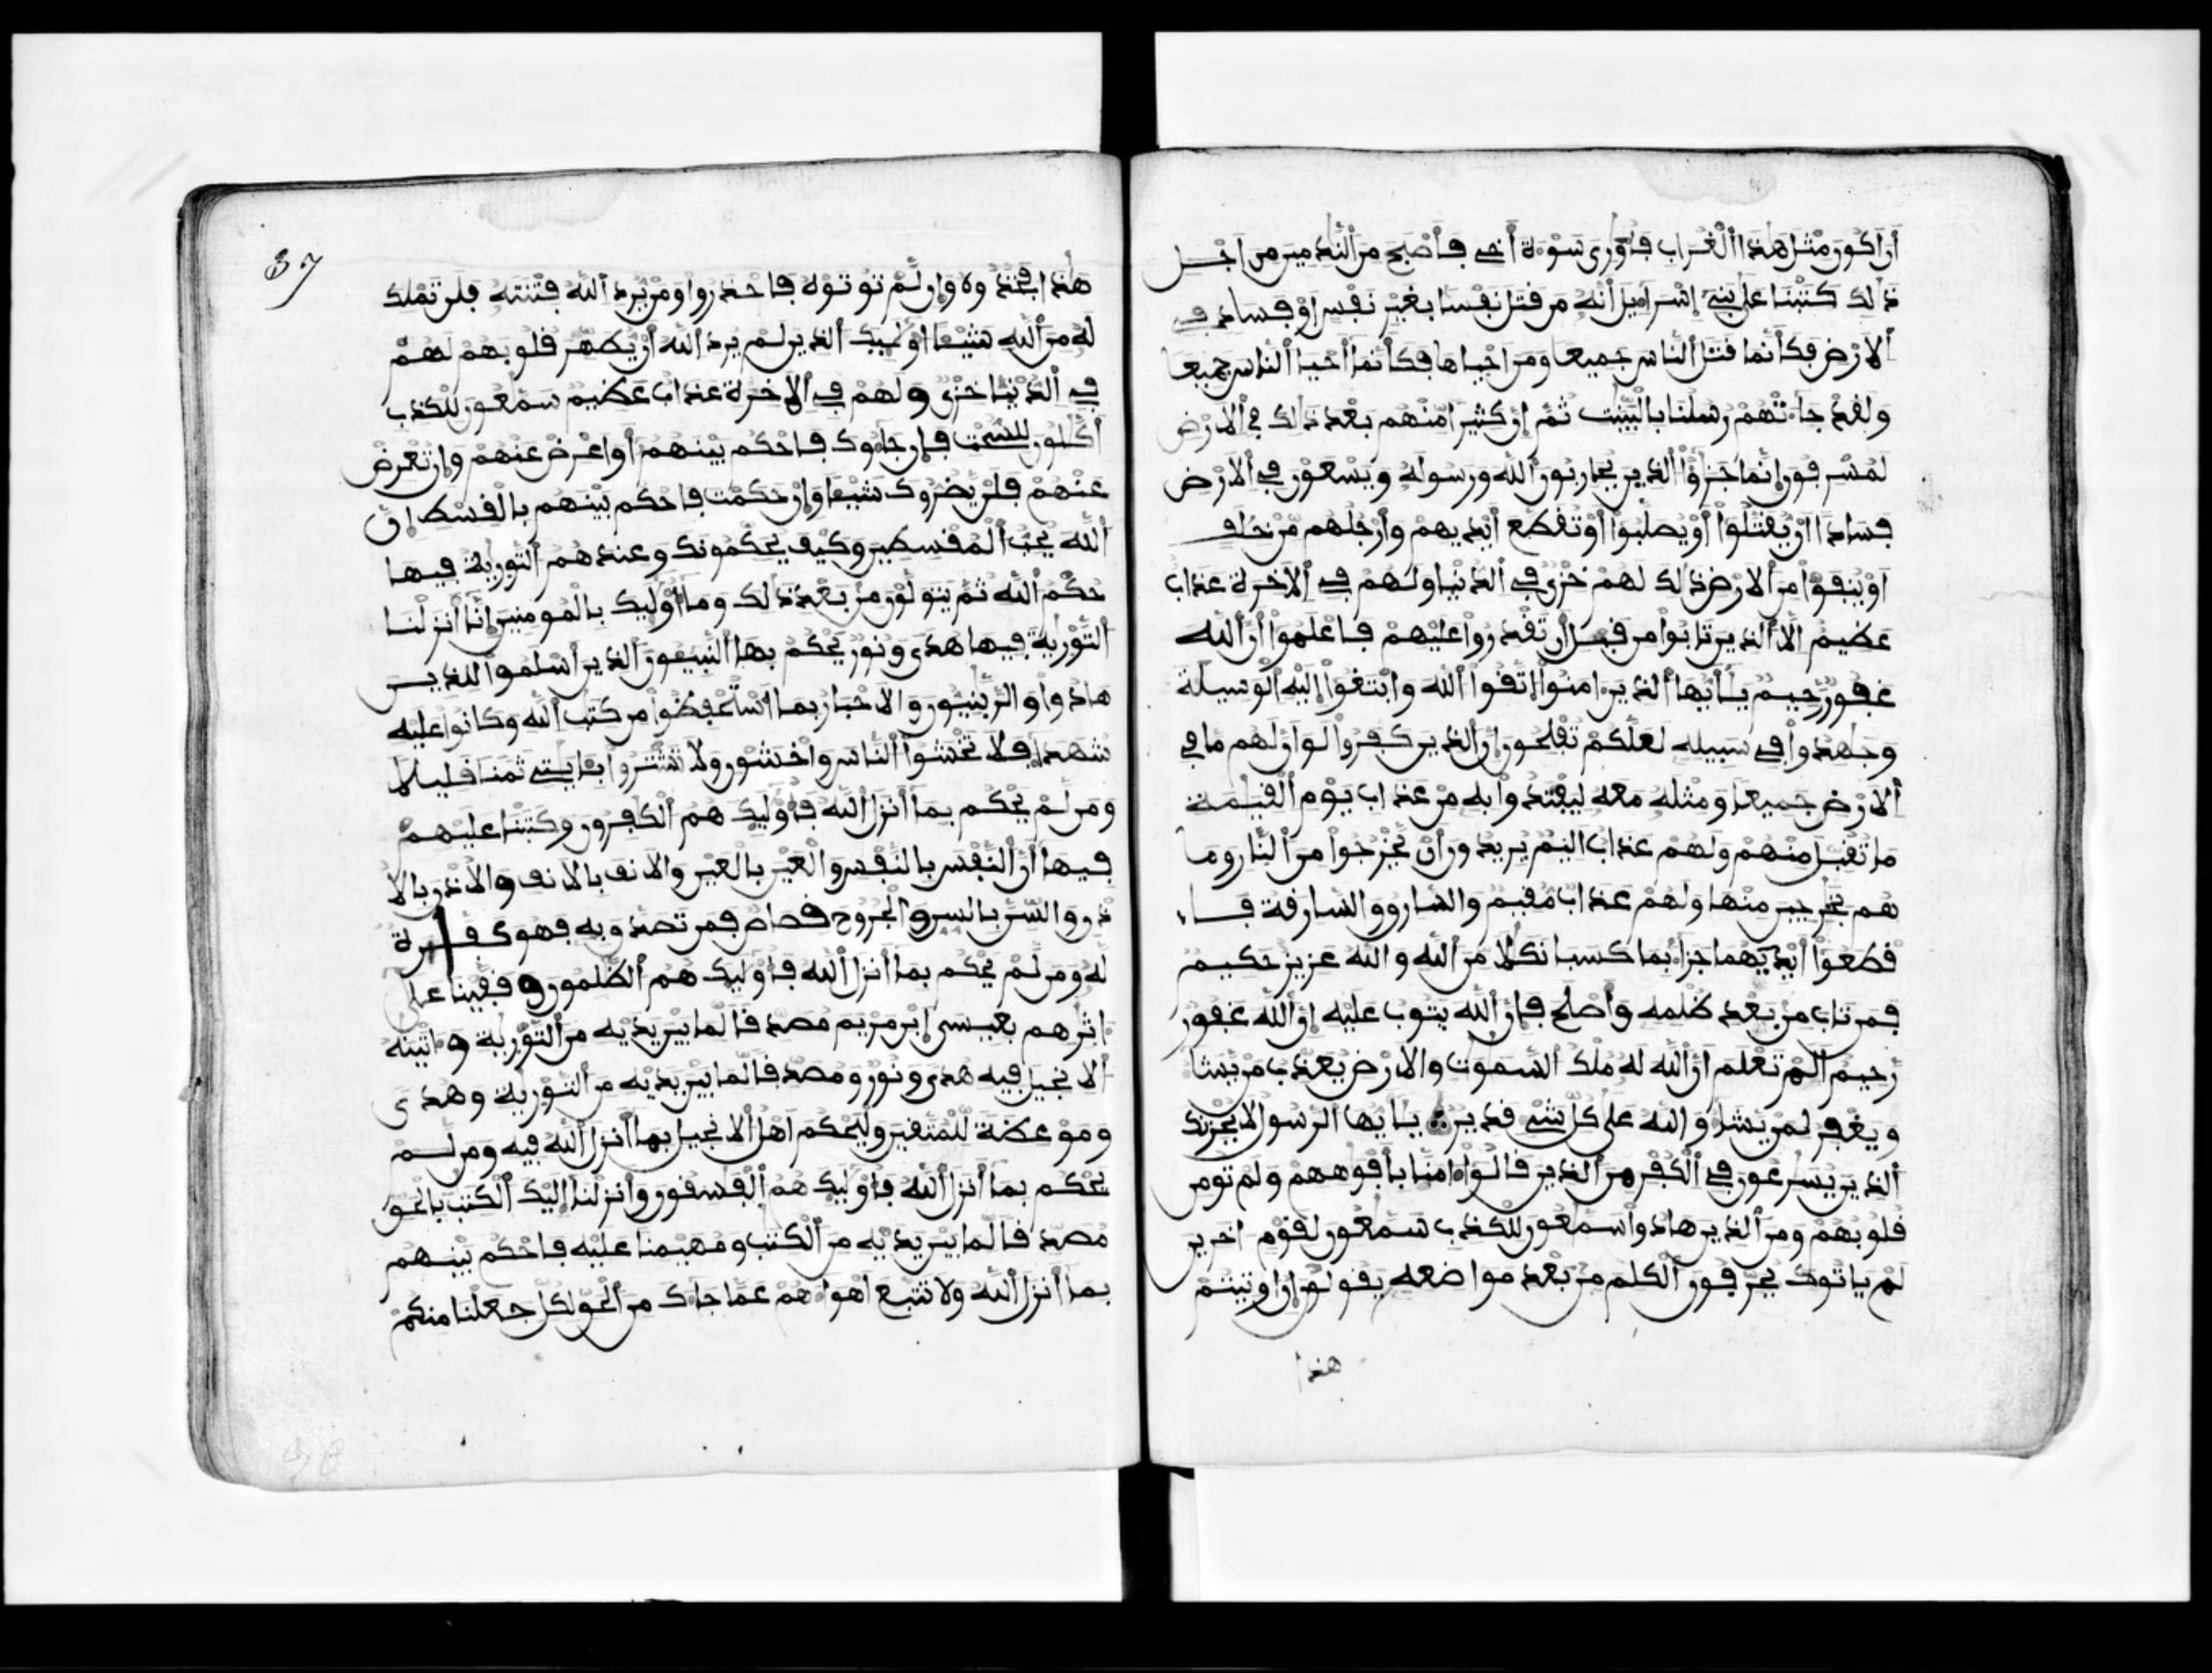 أن اكون مثل هذا الغراب فأوري سوءة أخي فأصبح من الندمين من اجل
ذلك كتبنا على بني إسراءيل أنه من قتل نفسا بغير نفس او فساد في
الارض فكأنما قتل الناس جميعا ومن احياها فكأنما أحيا الناس جميعا
ولقد جاءتهم رسلنا بالبينت ثم إن كثيرا منهم بعد ذلك في الارض
لمسرفون إنما جزؤا الذين يحاربون الله ورسوله ويسعون في الارض
فسادا ان يقتلوا أو يصلبوا أو تقطع أيديهم وأرجلهم من خلف
او ينفوا من الارض ذلك لهم خزي في الدنيا ولهم في الاخرة عذاب
عظيم الا الذين تابوا من قبل أن تقدروا عليهم فاعلموا أن الله
غفور رحيم يأيها الذين ءامنوا اتقوا الله وابتغوا إليه الوسيلة
وجهدوا في سبيله لعلكم تفلحون إن الذين كفروا لوان لهم ما في
الارض جميعا ومثله معه ليفتدوا به من عذاب يوم القيمة
ما تقبل منهم ولهم عذاب اليم يريدون أن يخرجوا من النار وما
هم بخرجين منها ولهم عذاب مقيم والسارق والسارقة فا
قطعوا أيديهما جزاء بما كسبا نكلا من الله والله عزيز حكيم
فمن تاب من بعد ظلمه وأصلح فإن الله يتوب عليه إن الله غفور
رحيم ألم تعلم أن الله له ملك السموت والارض يعذب من يشا
ويغفر لمن يشا والله على كل شيء قدير يأيها الرسول لا يحزنك
الذين يسرعون في الكفر من الذين قالوا ءامنا بأفوههم ولم تومن
قلوبهم ومن الذين هادوا سمعون للكذب سمعون لقوم اخرين
لم ياتوك يحرفون الكلم من بعد مواضعه يقولون إن اوتيتم
هذا
37
هذا فخذوه وإن لم توتوه فاحذروا ومن يرد الله فتنته فلن تملك
له من الله شيئا أوليك الذين لم يرد الله أن يطهر قلوبهم لهم
في الدنيا خزي ولهم في الاخرة عذاب عظيم سمعون للكذب
أكلون للسحت فإن جاءوك فاحكم بينهم أو اعرض عنهم وإن تعرض
عنهم فلن يضروك شيئا وإن حكمت فاحكم بينهم بالقسط إن
الله يحب المقسطين وكيف يحكمونك وعندهم التورية فيها
حكم الله ثم يتولون من بعد ذلك وما أوليك بالمومنين إنا أنزلنا
التورية فيها هدى ونور يحكم بها النبيئون الذين أسلموا للذين
هادوا والربنيون والاحبار بما استحفظوا من كتب الله وكانوا عليه
شهداء فلا تخشوا الناس واخشون ولا تشتروا بئايتي ثمنا قليلا
ومن لم يحكم بما أنزل الله فأوليك هم الكفرون وكتبنا عليهم
فيها أن النفس بالنفس والعين بالعين والانف بالانف والاذن بالا
ذن والسن بالسن والجروح قصاص فمن تصدق به فهو كفارة
له ومن لم يحكم بما أنزل الله فأوليك هم الظلمون وقفينا على
ءاثرهم بعيسى ابن مريم مصدقا لما بين يديه من التورية وءاتينه
الانجيل فيه هدى ونور ومصدقا لما بين يديه من التورية وهدى
وموعظة للمتقين وليحكم أهل الانجيل بما أنزل الله فيه ومن لم
يحكم بما أنزل الله فأوليك هم الفسقون وأنزلنا إليك الكتب بالحق
مصدقا لما بين يديه من الكتب ومهيمنا عليه فاحكم بينهم
بما أنزل الله ولا تتبع أهواءهم عما جاك من الحق لكل جعلنا منكم